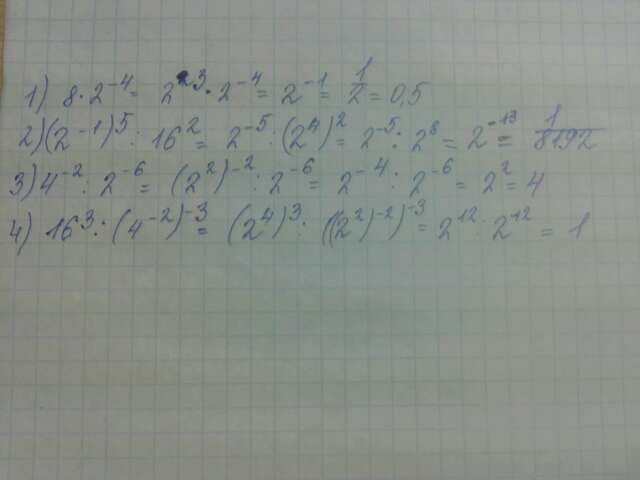 1) 8 · 2⁻⁴ = 2³ · 2⁻⁴ = 2⁻¹ = 1/2 = 0,5
2) (2⁻¹)⁵ : 16² = 2⁻⁵ : (2⁴)² = 2⁻⁵ : 2⁸ = 2⁻¹³ = 1/8192
3) 4⁻² : 2⁻⁶ = (2²)⁻² : 2⁻⁶ = 2⁻⁴ : 2⁻⁶ = 2² = 4
4) 16³ : (4⁻²)⁻³ = (2⁴)³ : ((2²)⁻²)⁻³ = 2¹² : 2¹² = 1